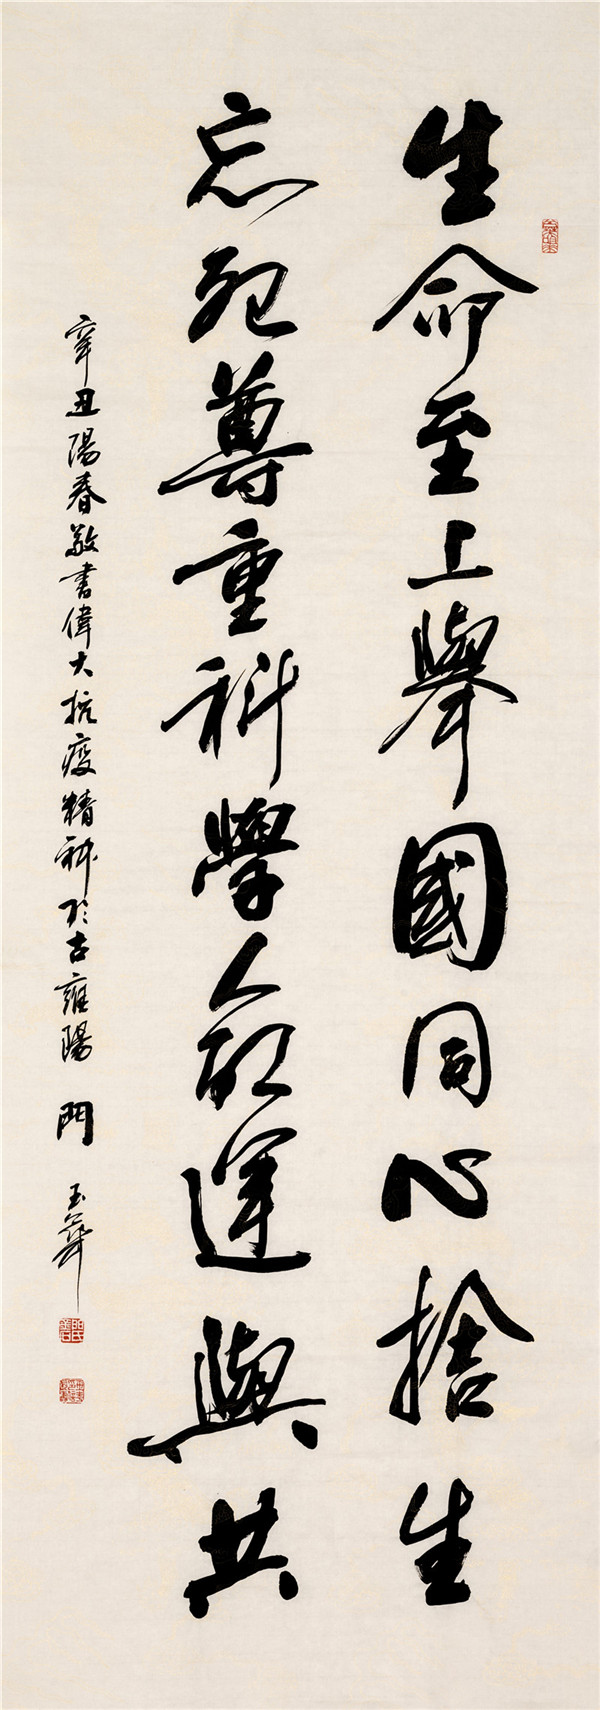 生命至上舉國同心捨生
忘死尊重科學命運與共
辛丑陽春敬書偉大抗疫精神於古雍陽 門玉華